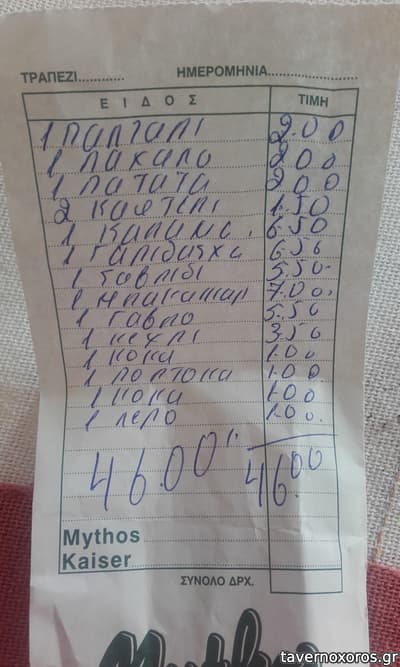 ΤΡΑΠΕΖΙ............ ΗΜΕΡΟΜΗΝΙΑ........................
ΕΙΔΟΣ ΤΙΜΗ
1 ΠΑΠΤΑΡΙ 2.00
1 ΛΑΧΑΝΟ 2.00
1 ΠΑΤΑΤΑ 2.00
2 ΚΑΦΤΕΡΙ 1.50
1 ΚΑΛΑΜΑ. 6.50
1 ΓΑΡΙΔΑΣΚΙ 6.50
1 ΣΑΒΡΙΔΙ 5.50
1 ΜΠΑΚΑΛΙΑΡ 7.00
1 ΓΑΒΡΟ 5.50
1 ΚΕΧΡΙ 3.50
1 ΚΟΚΑ 1.00
1 ΠΟΡΤΟΚΑ 1.00
1 ΚΟΚΑ 1.00
1 ΝΕΡΟ 1.00
46.00 46.00
Mythos
Kaiser
ΣΥΝΟΛΟ ΔΡΧ.
Mythos
tavernoxoros.gr